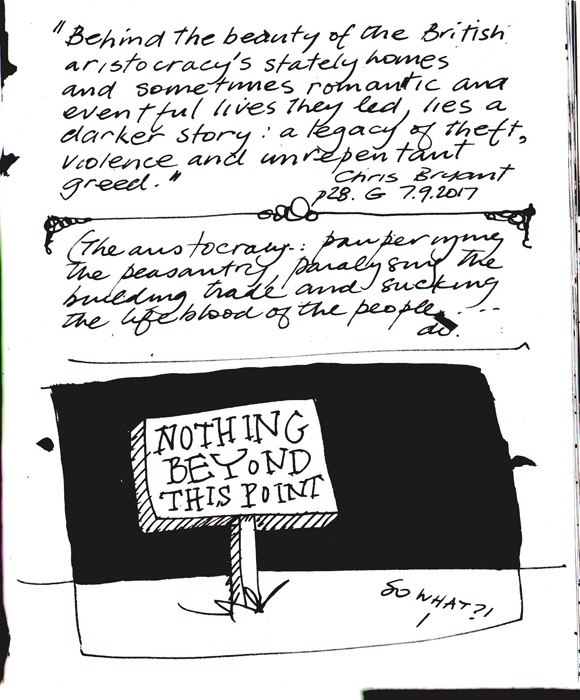 "Behind the beauty of the British
aristocracy's stately homes
and sometimes romantic and
eventful lives they led, lies a
darker story: a legacy of theft,
violence and unrepentant
greed."
Chris Bryant
p28. G 7.9.2017
(The aristocracy..: pauperising
the peasantry, paralysing the
building trade and sucking
the lifeblood of the people. ...
do.
NOTHING
BEYOND
THIS POINT
SO WHAT?!